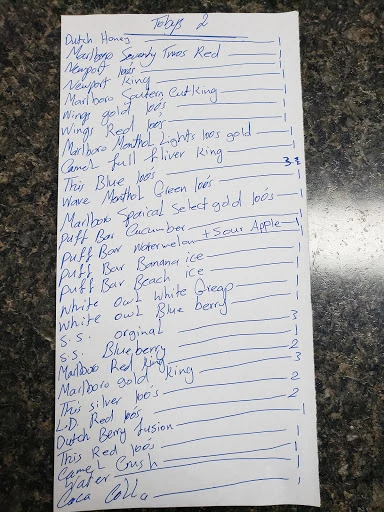 Tobys 2
Dutch Honey 1
Marlboro Seventy Twos Red 1
Newport 100s 1
Newport King 1
Marlboro Soutern Cut King 1
Wings gold 100s 1
Wings Red 100s 1
Marlboro Menthol Lights 100s gold 1
Camel full fliver King 1
This Blue 100s 3
Wave Menthol Green 100s 1
Marlboro Speical Select gold 100s 1
Puff Bar Cucumber 1
Puff Bar Watermelon + Sour Apple 1
Puff Bar Banana ice 1
Puff Bar Beach ice 1
White Owl White Greap 1
White Owl Blue berry 1
S.S. orginal 3
S.S. Blueberry 1
Marlboro Red King 2
Marlboro gold King 3
This silver 100s 2
L.D. Red 100s 2
Dutch Berry fusion 1
This Red 100s 1
Camel Crush 1
Water 1
Coca Colla 1